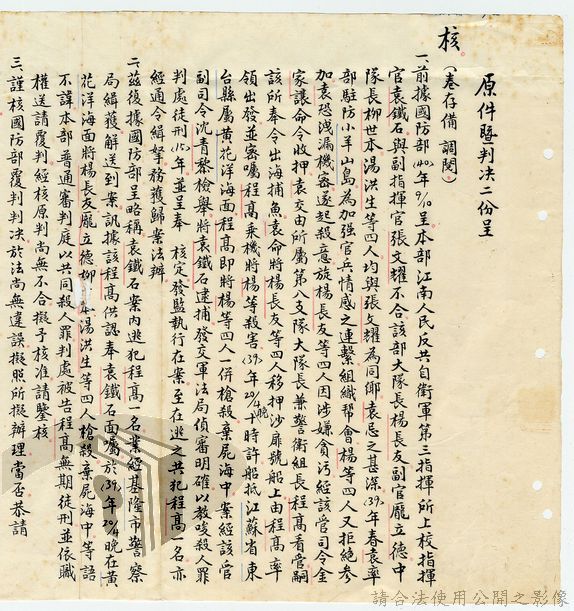 原件暨判決二份呈
核。(卷存備調閱)
一前據國防部(40)年9/10呈本部江南人民反共自衛軍第三指揮所上校指揮
官袁鐵石與副指揮官張文耀不合該部大隊長楊長友副官龐立德中
隊長柳世本湯洪生等四人均與張文耀為同鄉袁忌之甚深(39)年春袁率
部駐防小羊山島為加強官兵情感之連繫組織幫會楊等四人又拒絕參
加袁恐洩漏機密遂起殺意旋楊長友等四人因涉嫌貪污經該管司令金
家讓命令收押袁交由所屬第八支隊大隊長兼警衛組長程高看管嗣
該所奉令出海捕魚袁命將楊長友等四人移押沙扉號船上由程高率
領出發並密囑程高乘機將楊等殺害(39)年20/4晚 時許船抵江蘇省東
台縣屬黃花洋海面程高即將楊等四人一併槍殺棄屍海中案經該管
副司令沈青黎檢舉將袁鐵石逮捕發交軍法局偵審明確以教唆殺人罪
判處徒刑(15)年並呈奉 核定發監執行在案至在逃之共犯程高一名亦
經通令緝拏務獲歸案法辦
二茲復據國防部呈略稱袁鐵石案內逃犯程高一名業經基隆市警察
局緝獲解送到案訊據該程高供認奉袁鐵石面囑於(39)年20/4晚在黃
花洋海面將楊長友龐立德柳 本湯洪生等四人槍殺棄屍海中等語
不諱本部普通審判庭以共同殺人罪判處被告程高無期徒刑並依職
權送請覆判經核原判尚無不合擬予核准請鑒核
三謹核國防部覆判判決於法尚無違誤擬照所擬辦理當否恭請
請合法使用公開之影像